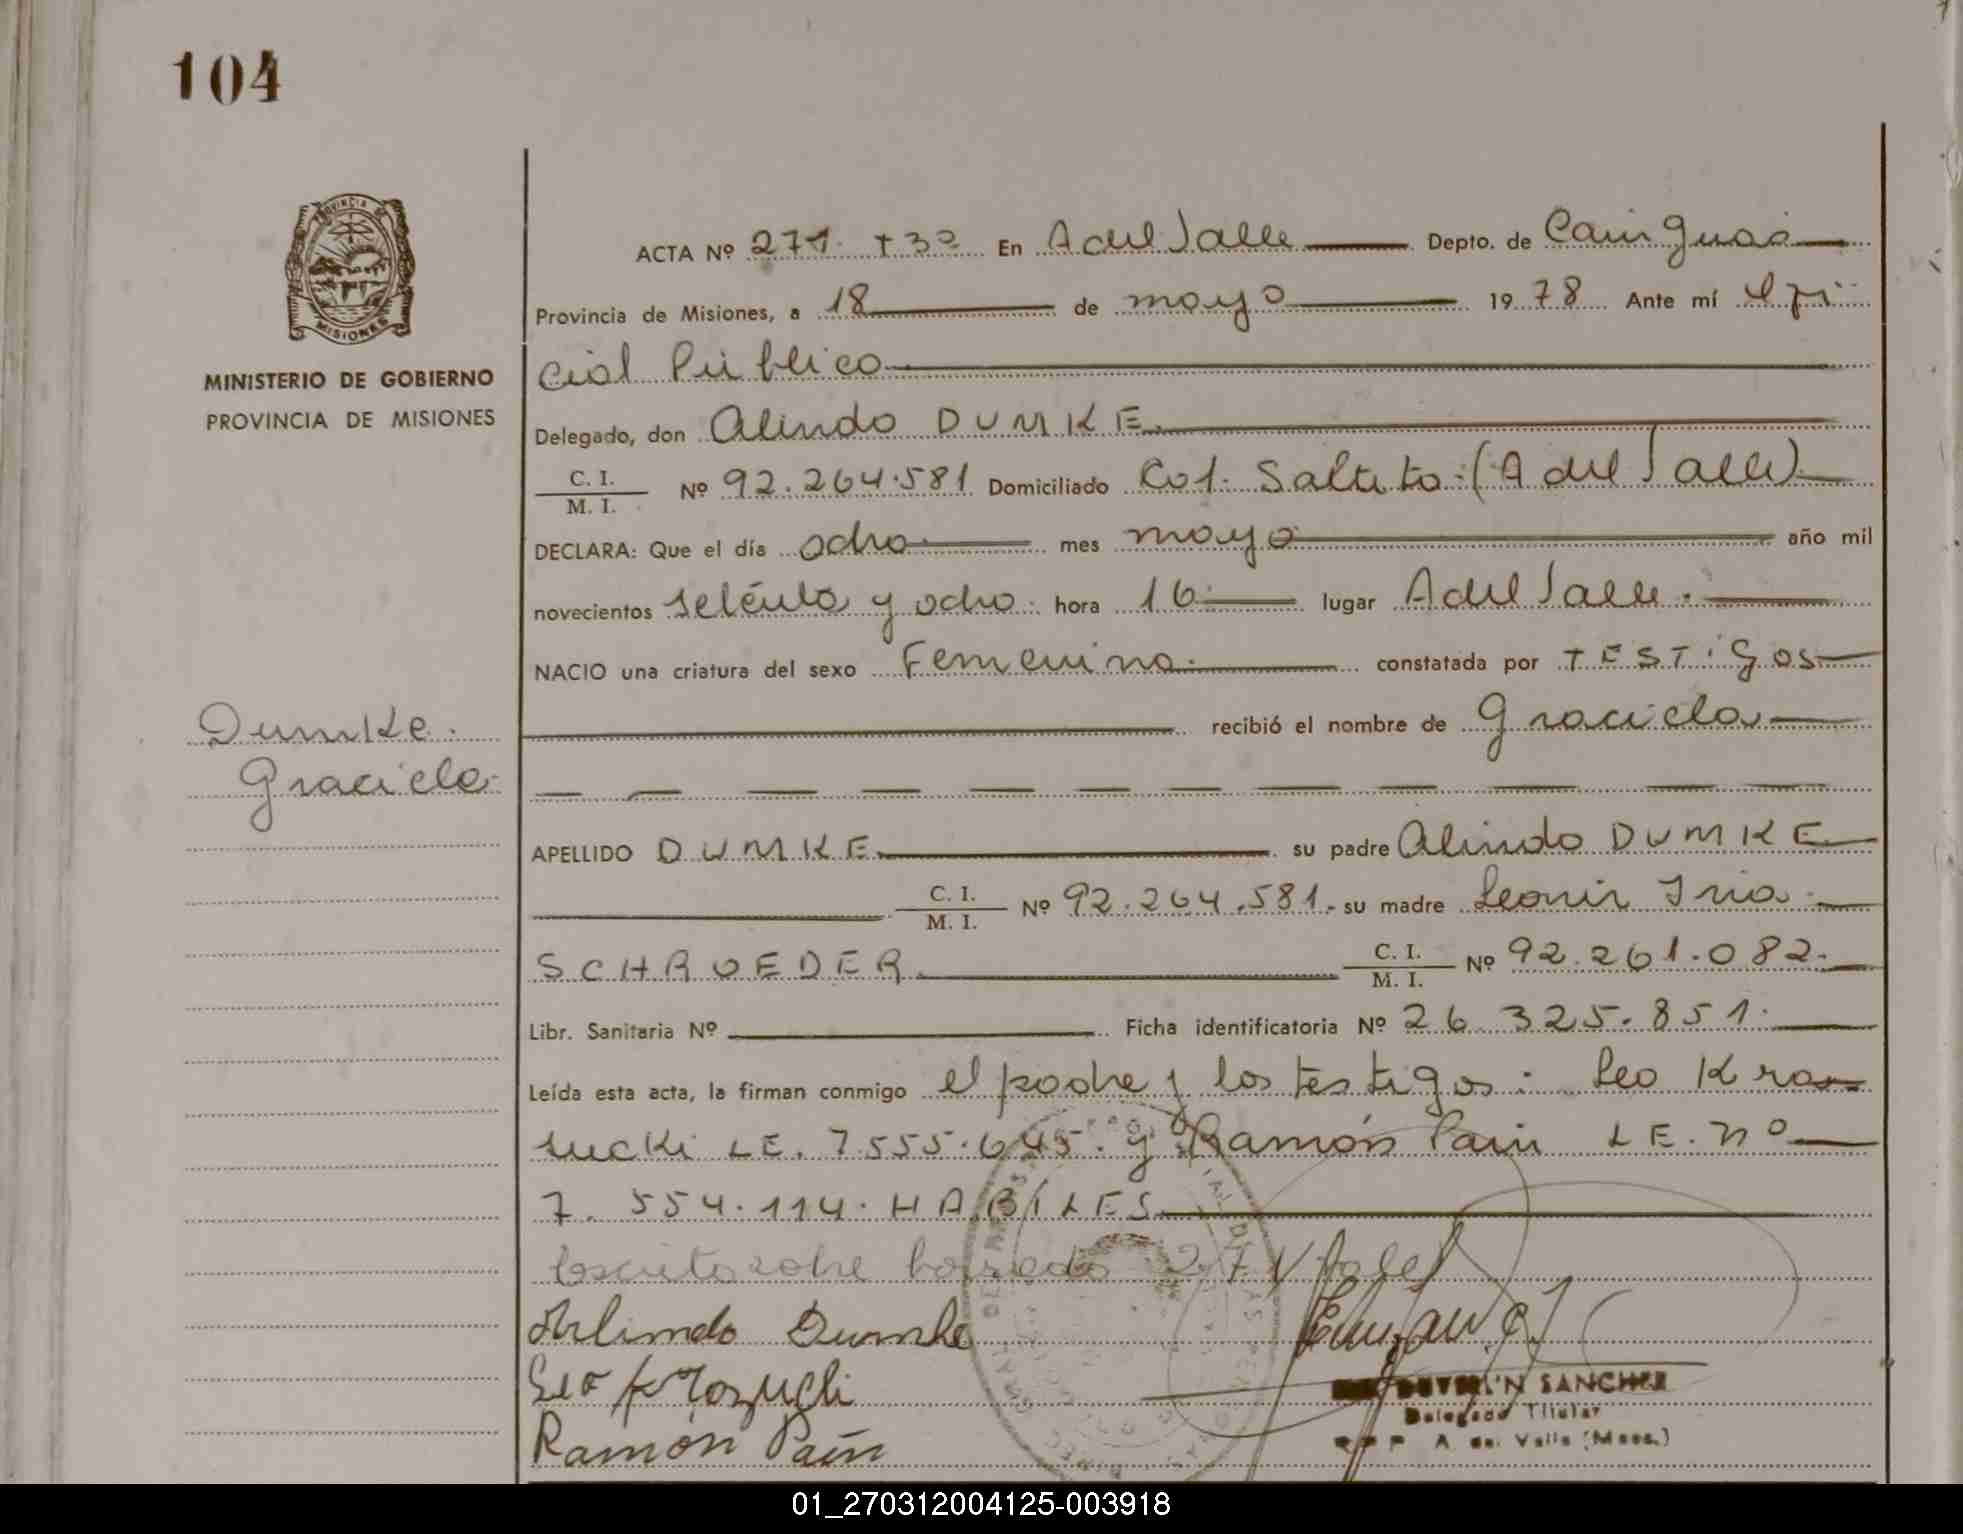 104
PROVINCIA DE
MISIONES
MINISTERIO DE GOBIERNO
PROVINCIA DE MISIONES
ACTA Nº 271. T3º En A del Valle Depto. de Cainguás
Provincia de Misiones, a 18 de mayo 1978 Ante mí Ofi
cial Público
Delegado, don Alindo DUMKE.
C. I.
M. I. Nº 92.264.581 Domiciliado Col. Saltito (A del Valle)
DECLARA: Que el día ocho mes mayo año mil
novecientos seténta y ocho. hora 16 lugar A del Valle.
NACIO una criatura del sexo Femenino. constatada por TESTigos
recibió el nombre de Graciela
Dumke.
Graciela
APELLIDO DUMKE su padre Alindo DUMKE
C. I.
M. I. Nº 92.264.581. su madre Leonir Iria
SCHROEDER. C. I.
M. I. Nº 92.261.082.
Libr. Sanitaria Nº Ficha identificatoria Nº 26 325.851.
Leída esta acta, la firman conmigo el padre y los testigos: Leo Kra
sucki LE. 7.555.645. y Ramón Pain LE. nº
7.554.114. HABILES
Escrito sobre borrado 27 Vale
Arlindo Dumke
Leo
Ramón Paín
SANCHEZ
Delegado Titular
A. del Valle (Mnes.)
01_270312004125-003918